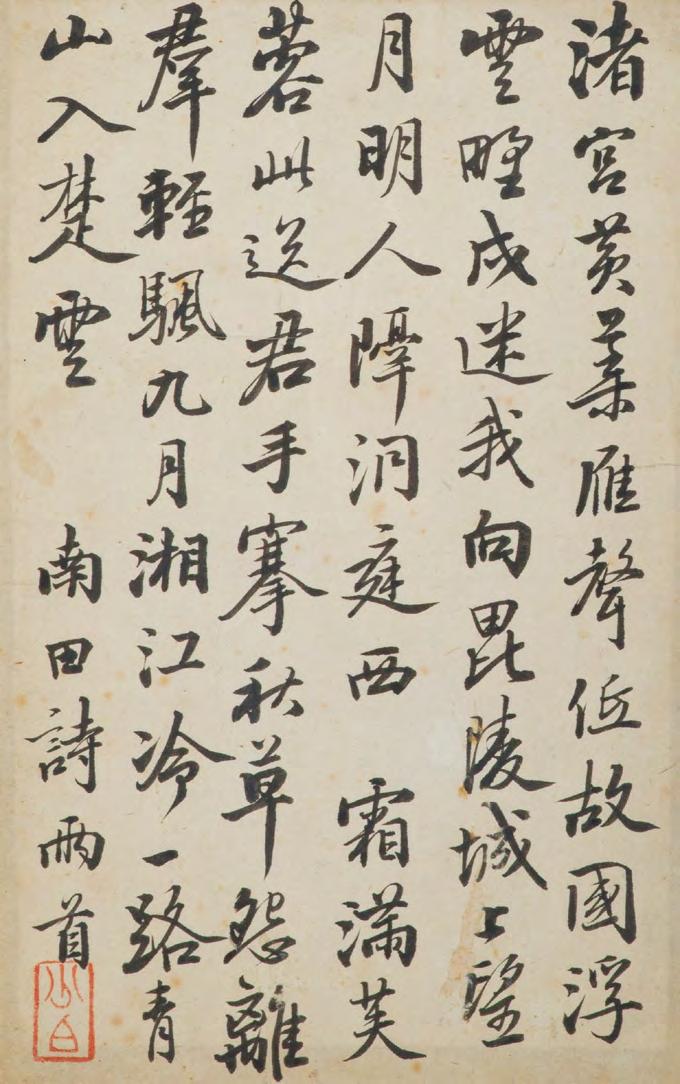 渚宮黃葉雁聲低故國浮
雲野戍迷我向毘陵城上望
月明人隔洞庭西 霜滿芙
蓉此送君手搴秋草怨離
羣輕颿九月湘江冷一路青
山入楚雲 南田詩兩首
少白